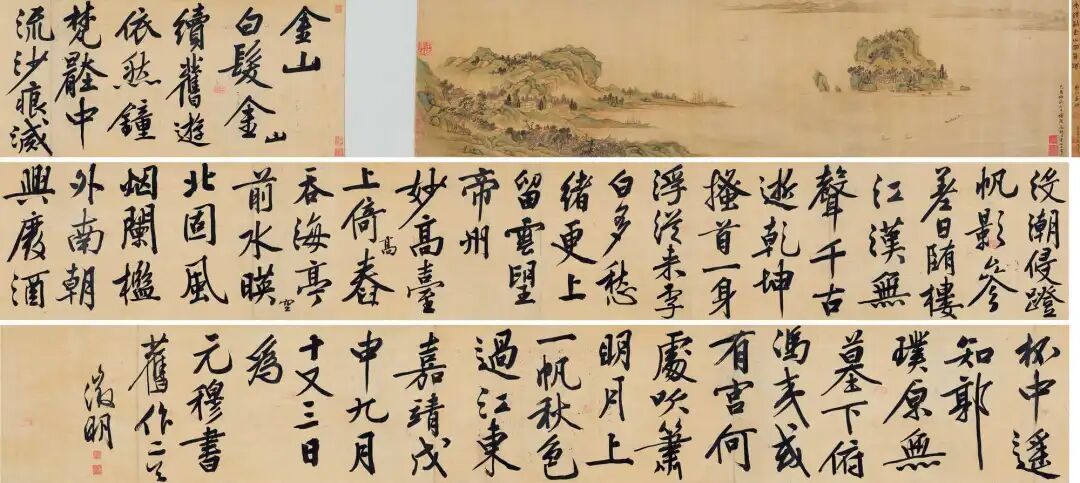 金山
白髮金山
續舊遊
依然鐘
梵壓中
流沙痕減
沒潮侵蹬
帆影參
差日陏樓
江漢無
聲千古
逝乾坤
搔首一身
浮從來李
白多愁
緒更上
留雲望
帝州
妙高臺
上倚高舂
吞海亭
前水映空
北固風
烟闌檻
外南朝
興廢酒
杯中遙
知郭
璞原無
墓下俯
馮夷或
有宮何
處吹簫
明月上
一帆秋色
過江東
嘉靖戊
申九月
十又三日
為
元穆書
舊作二首
徵明